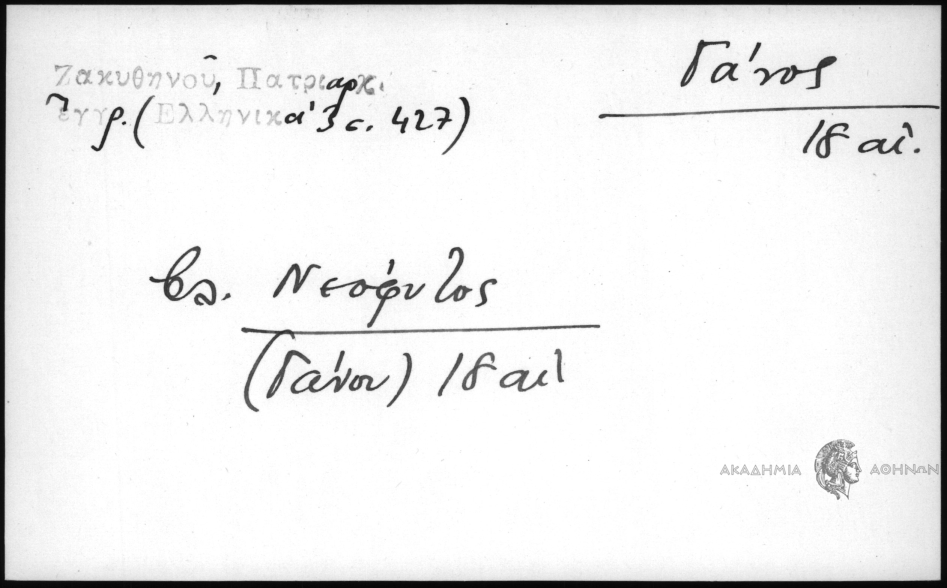 Ζακυθηνοῦ, Πατριαρχ.
ἔγγρ. (Ἑλληνικά 3 σ. 427)
Γάνος
18 αἰ.
βλ. Νεόφυτος
(Γάνου) 18 αἰ
ΑΚΑΔΗΜΙΑ ΑΘΗΝΩΝ